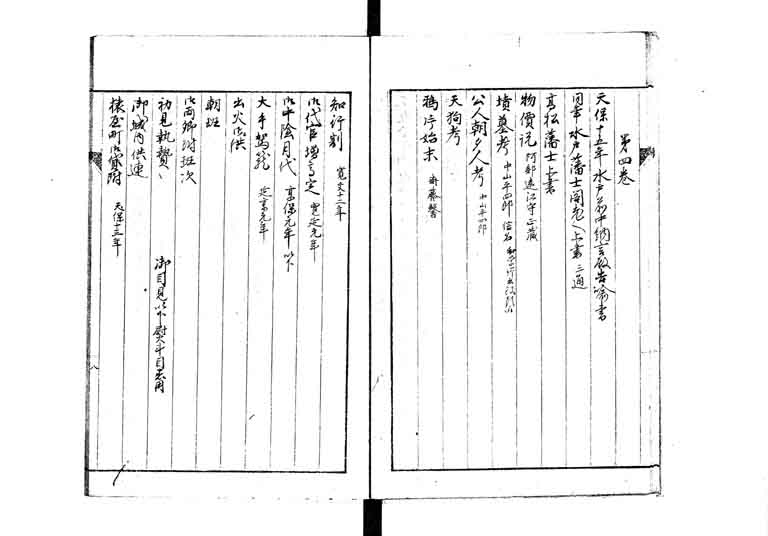 第四巻
天保十五年 水戸前中納言殿告諭書
同年 水戸藩士 上書 三通
高松藩士上書
物價説 阿部遠江守正蔵
墳墓考 中山平四郎 信名
公人朝夕人考 中山平四郎
天狗考
鴉片始末 斎藤馨
知行割 寛文十二年
御代官増高定 寛延元年
月代 享保元年以下
大手駕籠 延享元年
出火御供
朝班
御両卿附班次
初見執贄
御城内供連
御目見以下熨斗目着用
猿屋町御貸附 天保十三年
八